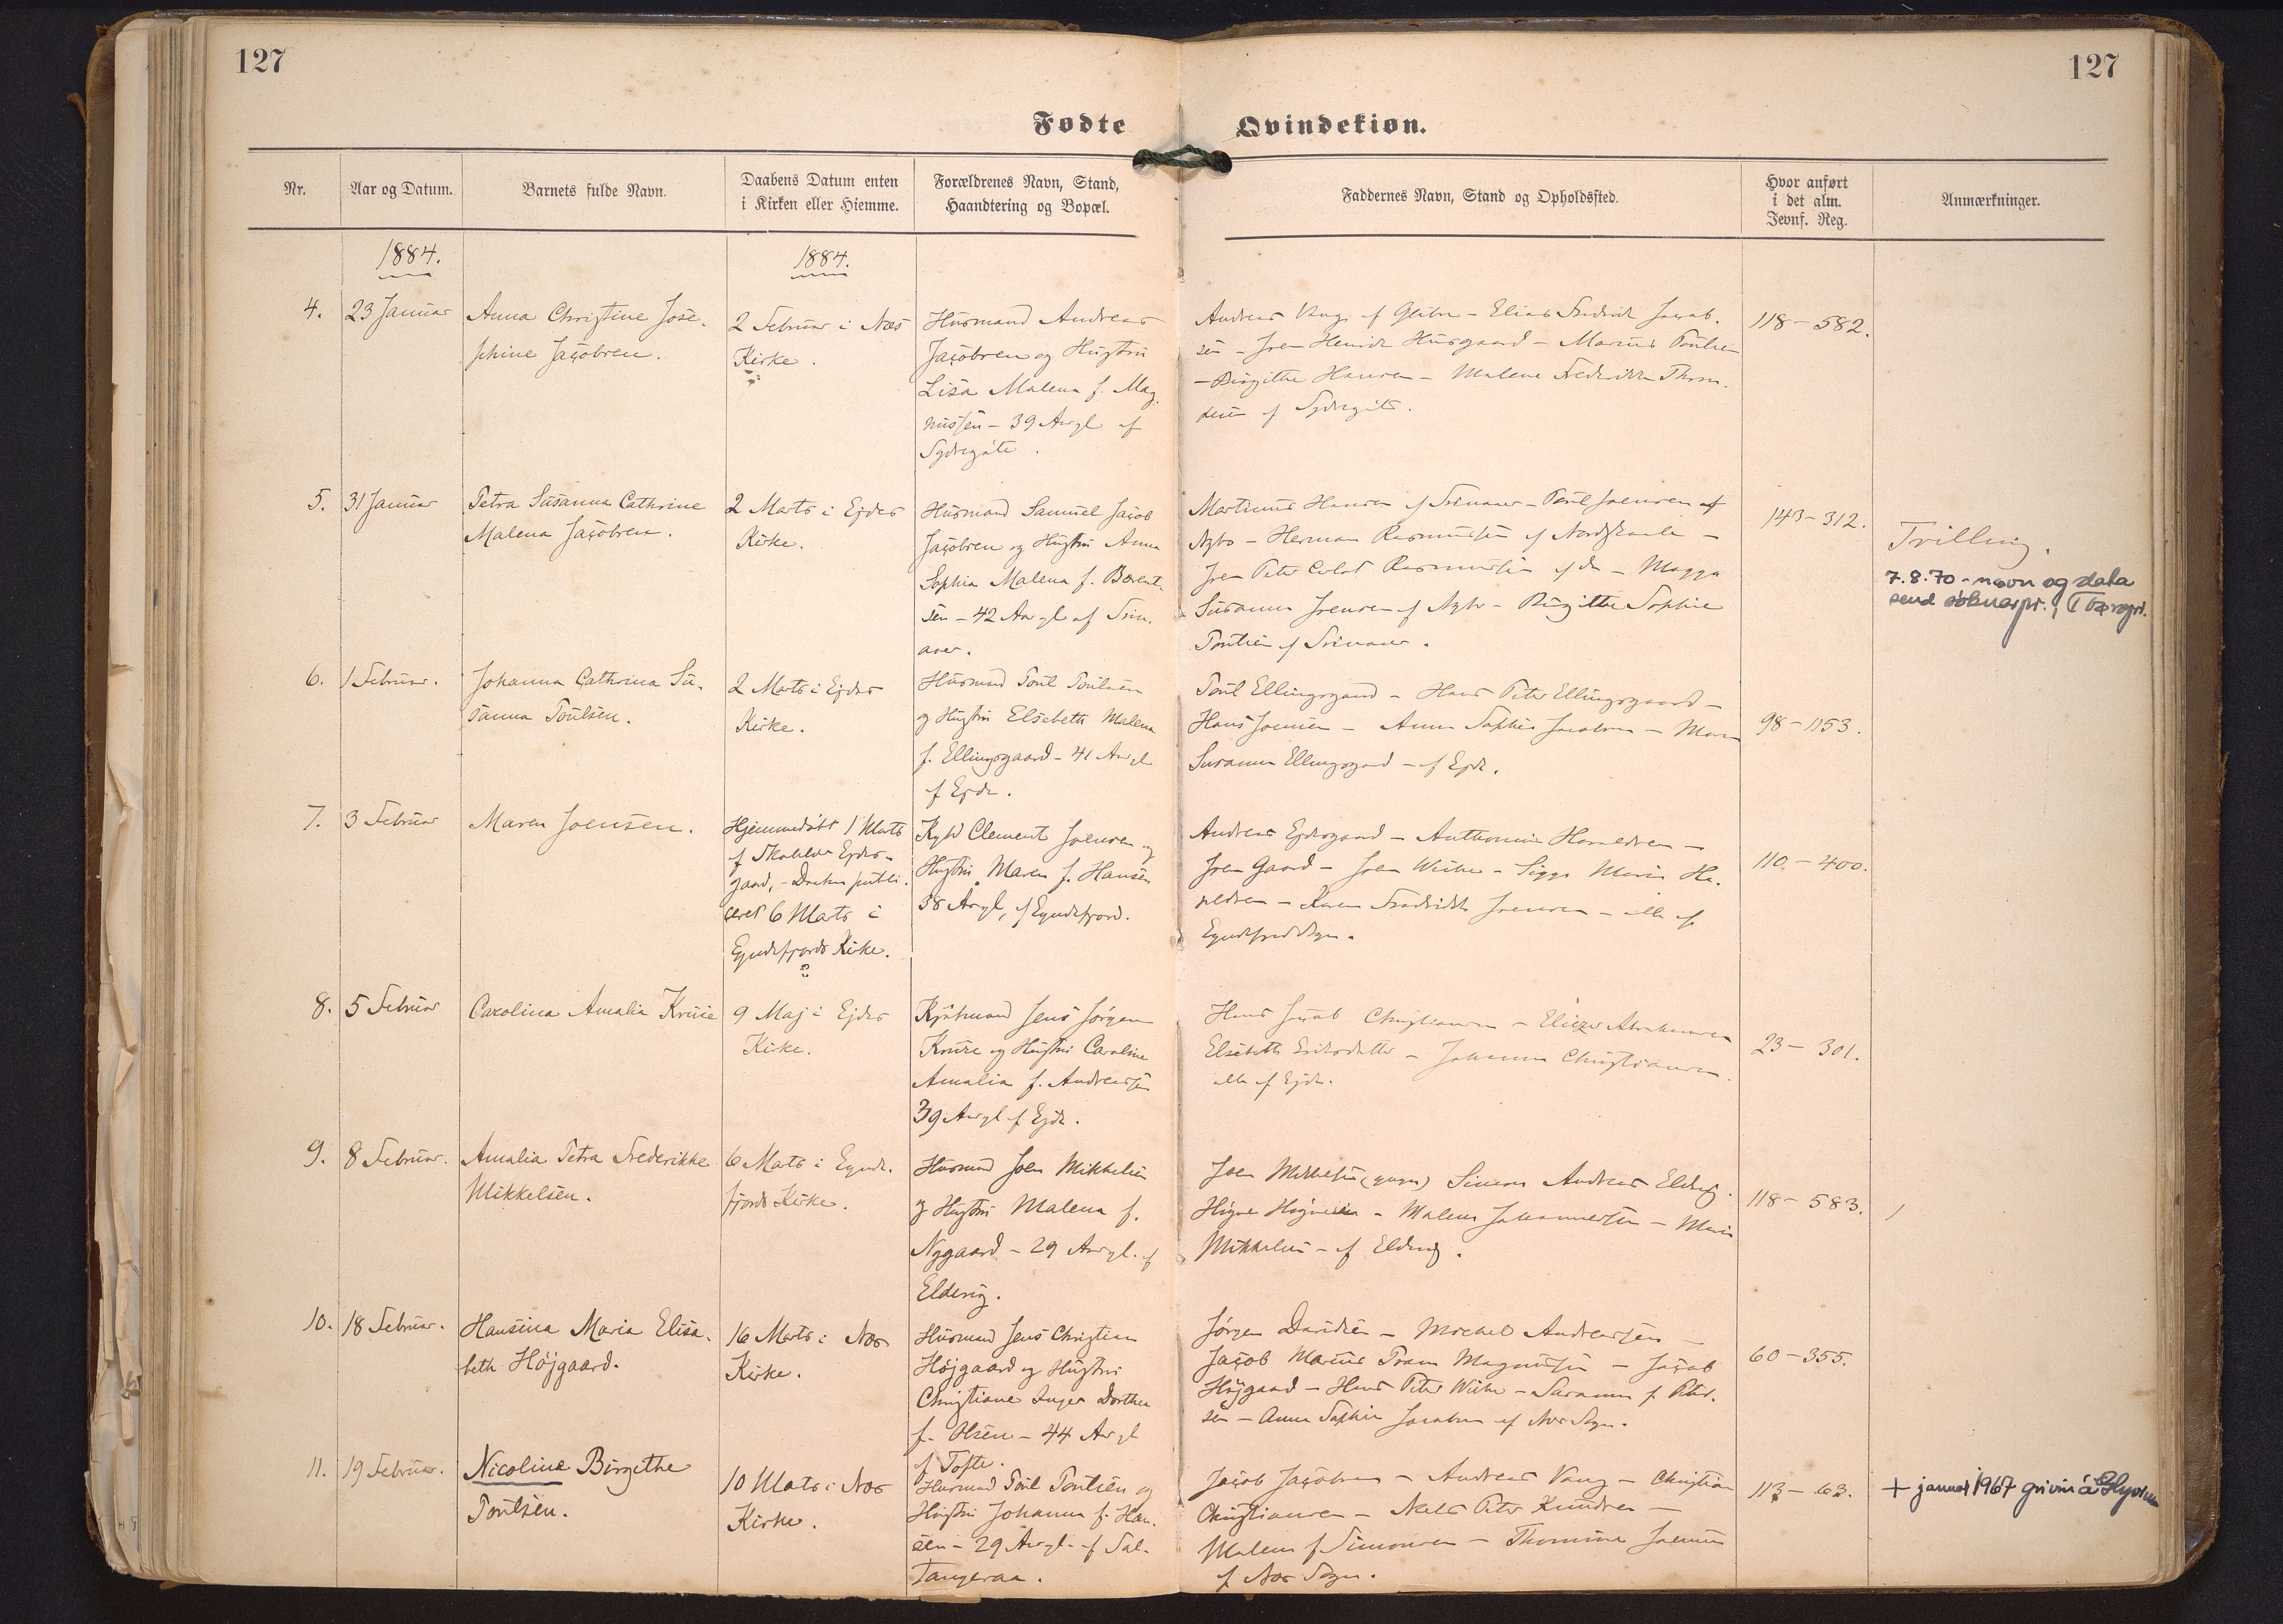 127
127
Fødte
Qvindekiøn.
Nr.
Aar og Datum.
Barnets fulde Navn.
Daabens Datum enten
i Kirken eller Hiemme.
Forældrenes Navn, Stand,
Haandtering og Bopæl.
Faddernes Navn, Stand og Opholdssted.
Hvor anført
i det alm.
Jevnf. Reg.
Anmærkninger.
1884.
1884.
4.
23 Januar
Anna Christine Jose-
phine Jacobsen.
2 Februar i Næs
Kirke.
Husmand Andreas
Jacobsen og Hustru
Lisa Malena f. Mag-
nussen - 39 Aar gl af
Sydregøte.
Andreas af - Elias Fredrik Jacob-
sen - Joen Henrik Husgaard - Marius Poulsen
- Birgithe Hansen - Malene Frederikke Thom-
sen af Sydregøte.
118 - 582.
5.
31 Januar
Petra Susanna Cathrine
Malena Jacobsen.
2 Marts i Ejdes
Kirke.
Husmand Samuel Jacob
Jacobsen og Hustru Anna
Sophia Malena f. Berent-
sen - 42 Aar gl af Svin-
aaer.
Martinus Hansen af Svinaaer - Poul Joensen af
Nybo - Herman Rasmussen af Nordskaale -
Joen Peter Rasmussen af do - Magga
Susanna Joensen af Nybo - Birgitte Sophie
Poulsen af Svinaaer.
143 - 312.
Trilling.
7.8.70 - navn og data
send
6.
1 Februar.
Johanna Cathrina Su-
sanna Poulsen.
2 Marts i Ejdes
Kirke.
Husmand Poul Poulsen
og Hustru Elsebeth Malena
f. Ellingsgaard - 41 Aar gl
af Ejde.
Poul Ellingsgaard - Hans Peter Ellingsgaard -
Hans Joensen - Anna Sophie Jacobsen -
Susanna Ellingsgaard - af Ejde.
98 - 1153.
7.
3 Februar
Maren Joensen.
Hjemmedøbt 1 Marts
af Ejdes-
gaard, - Daaben publi-
ceret 6 Marts i
Eyndefjords Kirke.
Clement Joensen og
Hustru Maren f. Hansen
38 Aar gl, af Eyndefjord.
Andreas Ejdesgaard - Haraldsen -
Joen Gaard - Joen Weihe - Sigga Maria Ha-
raldsen - Karen Joensen - alle af
Eyndefjord Sogn.
110 - 400.
8.
5 Februar
Carolina Amalia Kruse
9 Maj i Ejdes
Kirke.
Kjøbmand Jens Jørgen
Kruse og Hustru Caroline
Amalia f. Andreassen
39 Aar gl af Ejde.
Hans Jacob Christiansen - Eliezer Abrahamsen
Elsebeth - Johanna Christiansen
alle af Ejde.
23 - 301.
9.
8 Februar.
Amalia Petra Frederikke
Mikkelsen.
6 Marts i Eynde-
fjords Kirke.
Husmand Joen Mikkelsen
og Hustru Malena f.
Nygaard - 29 Aar gl. af
Eldevig.
Joen Mikkelsen Simon Andreas Eldevig
Malena Johannessen - Maria
Mikkelsen - af Eldevig.
118 - 583.
10.
18 Februar.
Hansina Maria Elisa-
beth Højgaard.
16 Marts i Næs
Kirke.
Husmand Jens Christian
Højgaard og Hustru
Christiane Inger Dorthea
f. Olsen - 44 Aar gl
af Tofte.
Jørgen Davidsen - Michel Andreassen -
Jacob Marius Magnussen - Jacob
Højgaard - Hans Peter Weihe - Susanna f. Peter-
sen - Anna Sophie Jacobsen af Næs Sogn.
60 - 355.
11.
19 Februar.
Nicoline Birgithe
Poulsen.
10 Marts i Næs
Kirke.
Husmand Poul Poulsen og
Hustru Johanna f. Han-
sen - 29 Aar gl. af Sal-
tangeraa.
Jacob Jacobsen - Andreas Vang - Christian
Christiansen - Niels Peter Knudsen -
Malena f. Simonsen - Thomine Joensen
af Næs Sogn.
113 - 63.
+ januar 1967